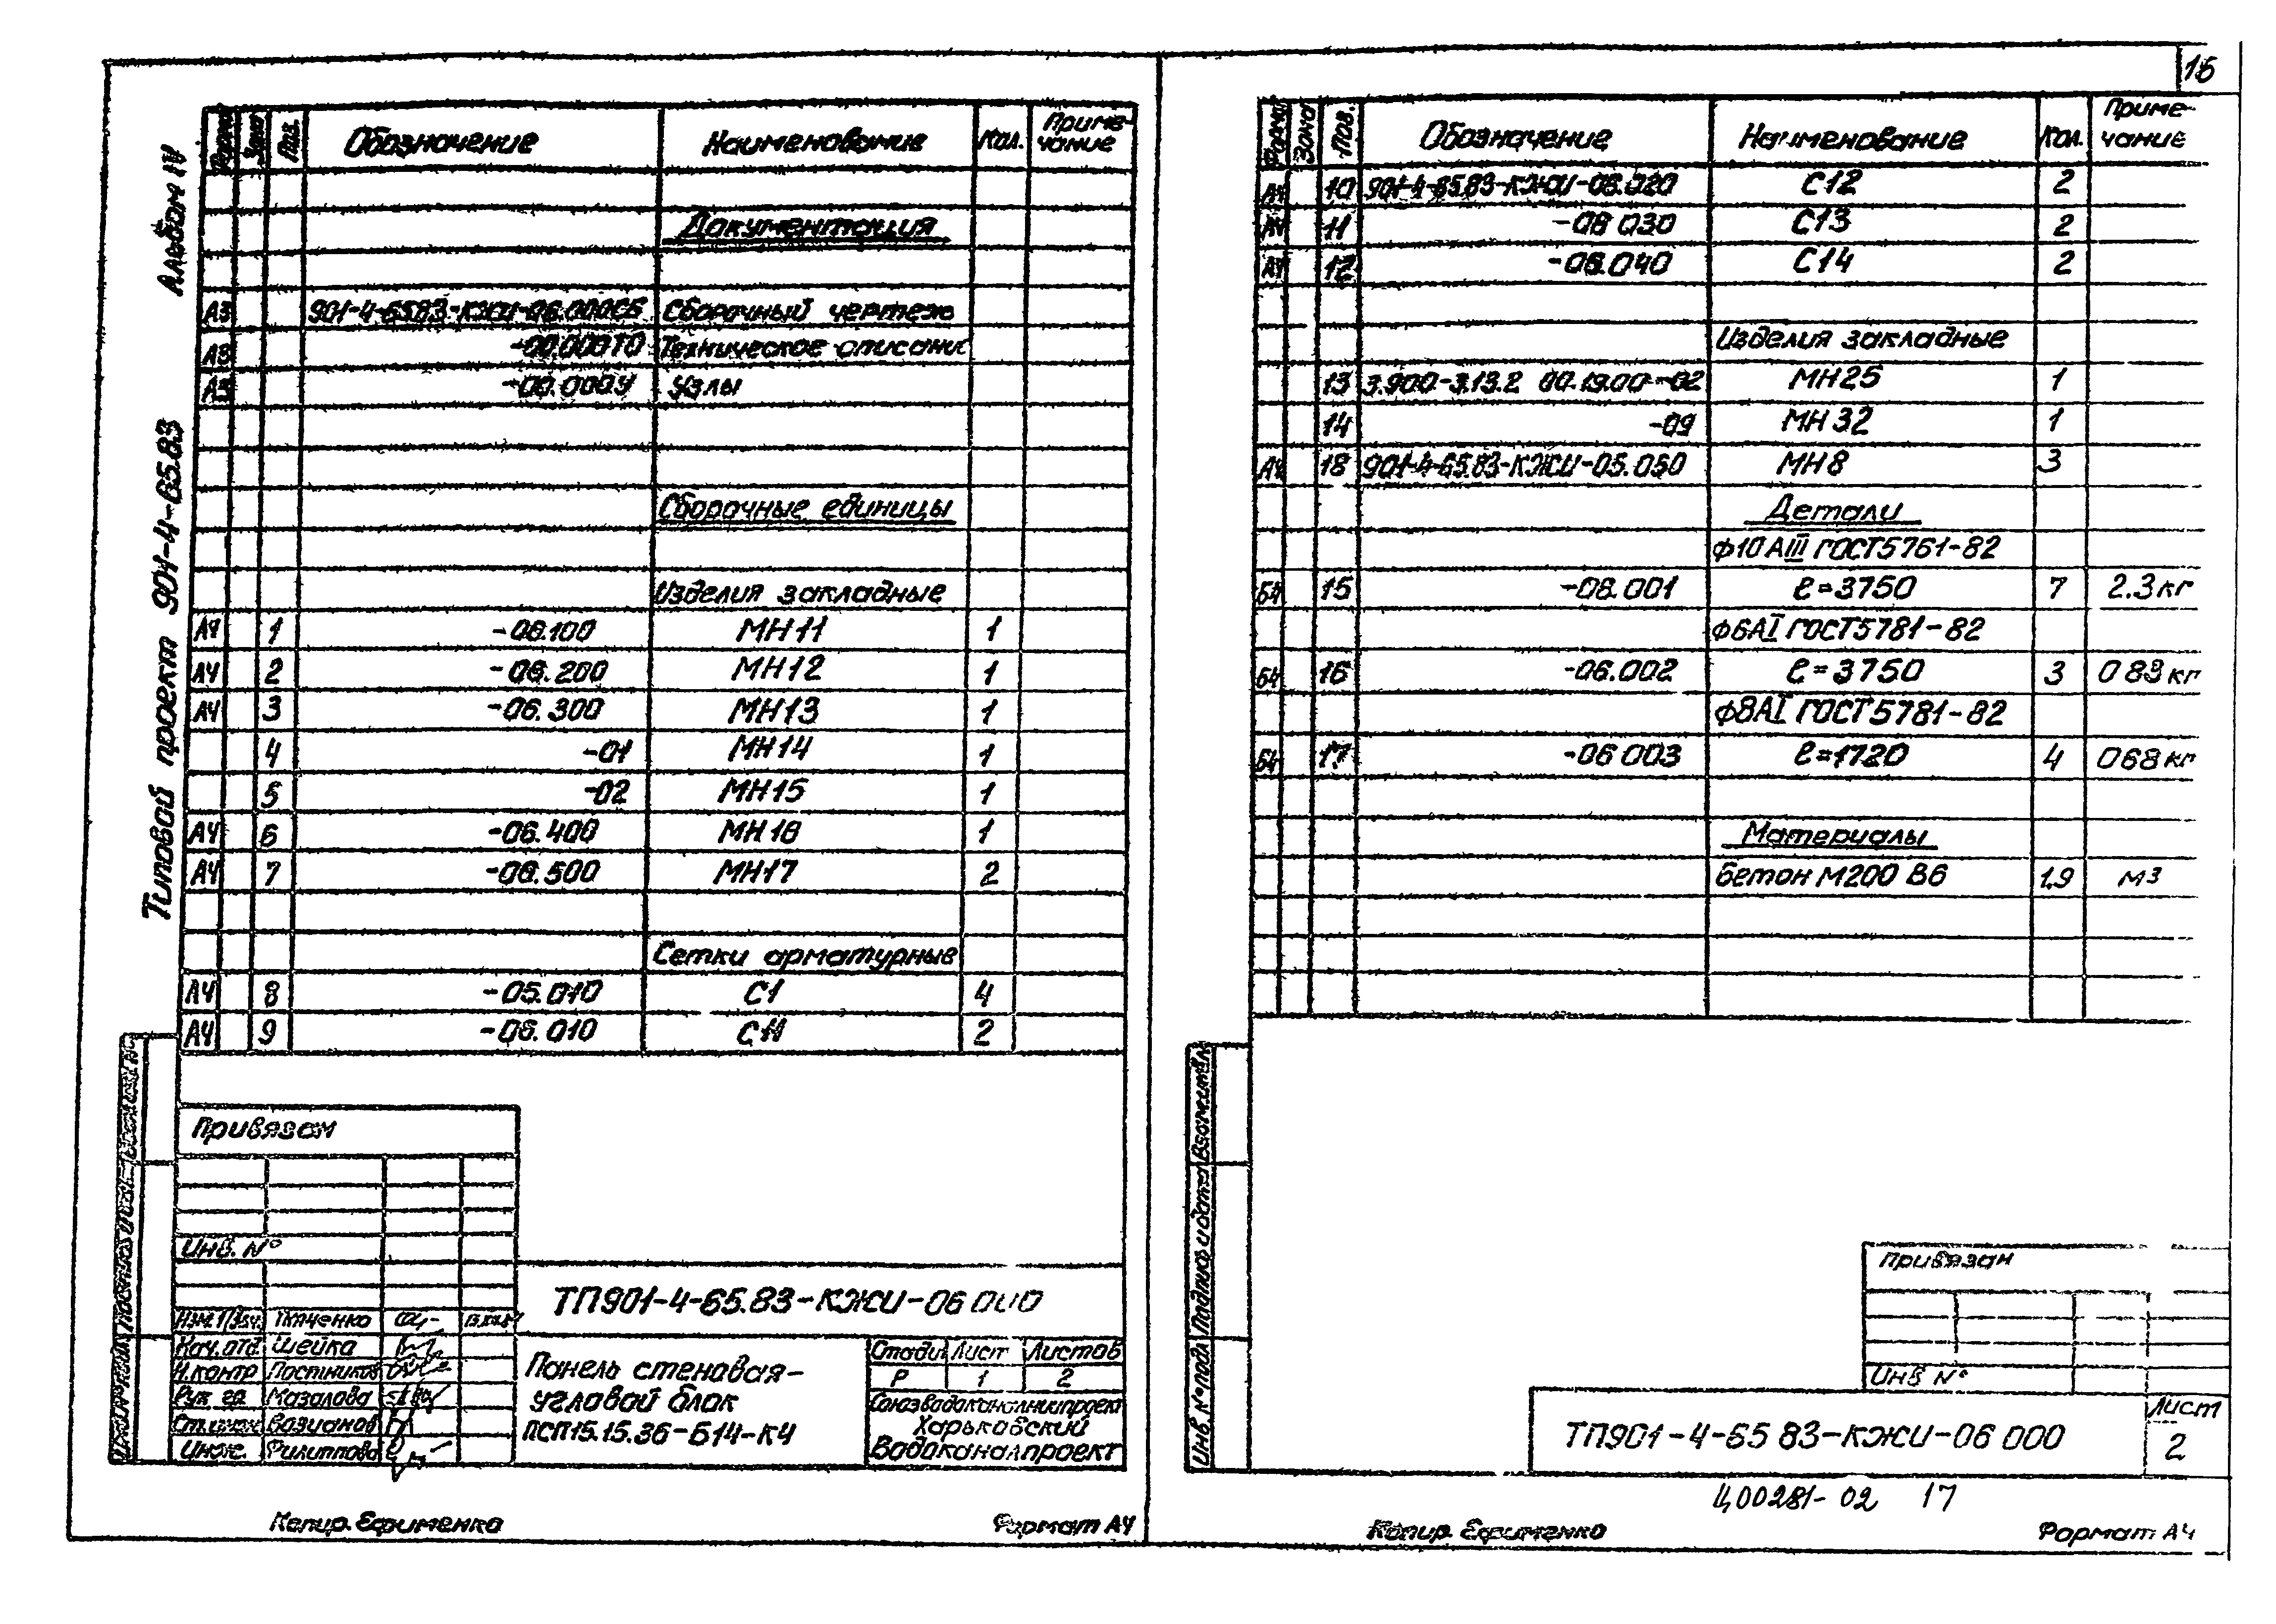 16
Альбом IV
Типовой проект 901-4-65.83
Форма Зона Поз. Обозначение Наименование Кол. Приме-
чание
Документация
А3 901-4-65.83-КЖИ-06.000СБ Сборочный чертеж
А3 -00.000ТО Техническое описани
А3 -00.000У Узлы
Сборочные единицы
Изделия закладные
А4 1 -06.100 МН11 1
А4 2 -06.200 МН12 1
А4 3 -06.300 МН13 1
4 -01 МН14 1
5 -02 МН15 1
А4 6 -06.400 МН16 1
А4 7 -06.500 МН17 2
Сетки арматурные
А4 8 -05.010 С1 4
А4 9 -06.010 С11 2
Привязан
Инв. N°
ТП901-4-65.83-КЖИ-06 000
Изм.1/Зач. Ткаченко
Нач.отд. Шейко
Н.контр Постников
Рук гр. Мазалова
Ст.инж. Вазианов
Инж. Филиппова
Панель стеновая-
угловой блок
ПСП15.15.36-Б14-К4
Стади Лист Листов
Р 1 2
Союзводоканалниипроект
Харьковский
Водоканалпроект
Копир. Ефименко
Формат А4
Форма Зона Поз. Обозначение Наименование Кол. Приме-
чание
А4 10 901-4-65.83-КЖИ-06.020 С12 2
А4 11 -06 030 С13 2
А4 12 -06.040 С14 2
Изделия закладные
13 3.900-3.13.2 00.19.00-02 МН25 1
14 -09 МН32 1
А4 18 901-4-65.83-КЖИ-05.050 МН8 3
Детали
ф10АIII ГОСТ5761-82
БЧ 15 -06.001 ℓ=3750 7 2.3кг
ф6АI ГОСТ5781-82
БЧ 16 -06.002 ℓ=3750 3 0 83кг
ф8АI ГОСТ5781-82
БЧ 17 -06 003 ℓ=1720 4 0 68кг
Материалы
бетон М200 В6 1.9 м3
Инв. N°подл Подпись и дата Взам.инв.
Привязан
Инв N°
ТП901-4-65 83-КЖИ-06 000
Лист
2
Ц00281-02 17
Копир. Ефименко
Формат А4